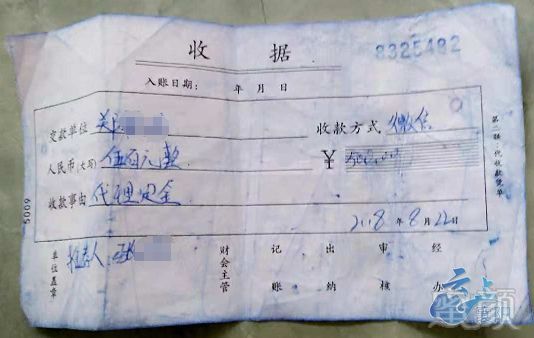 收 据
8325482
入账日期： 年 月 日
交款单位 关 收款方式 微信
人民币(大写) 伍百元整 ￥ 500.00
收款事由 代理定金
2018 年 8 月 22 日
单位盖章 推荐人：张 财会主管 记账 出纳 审核 经办
5009